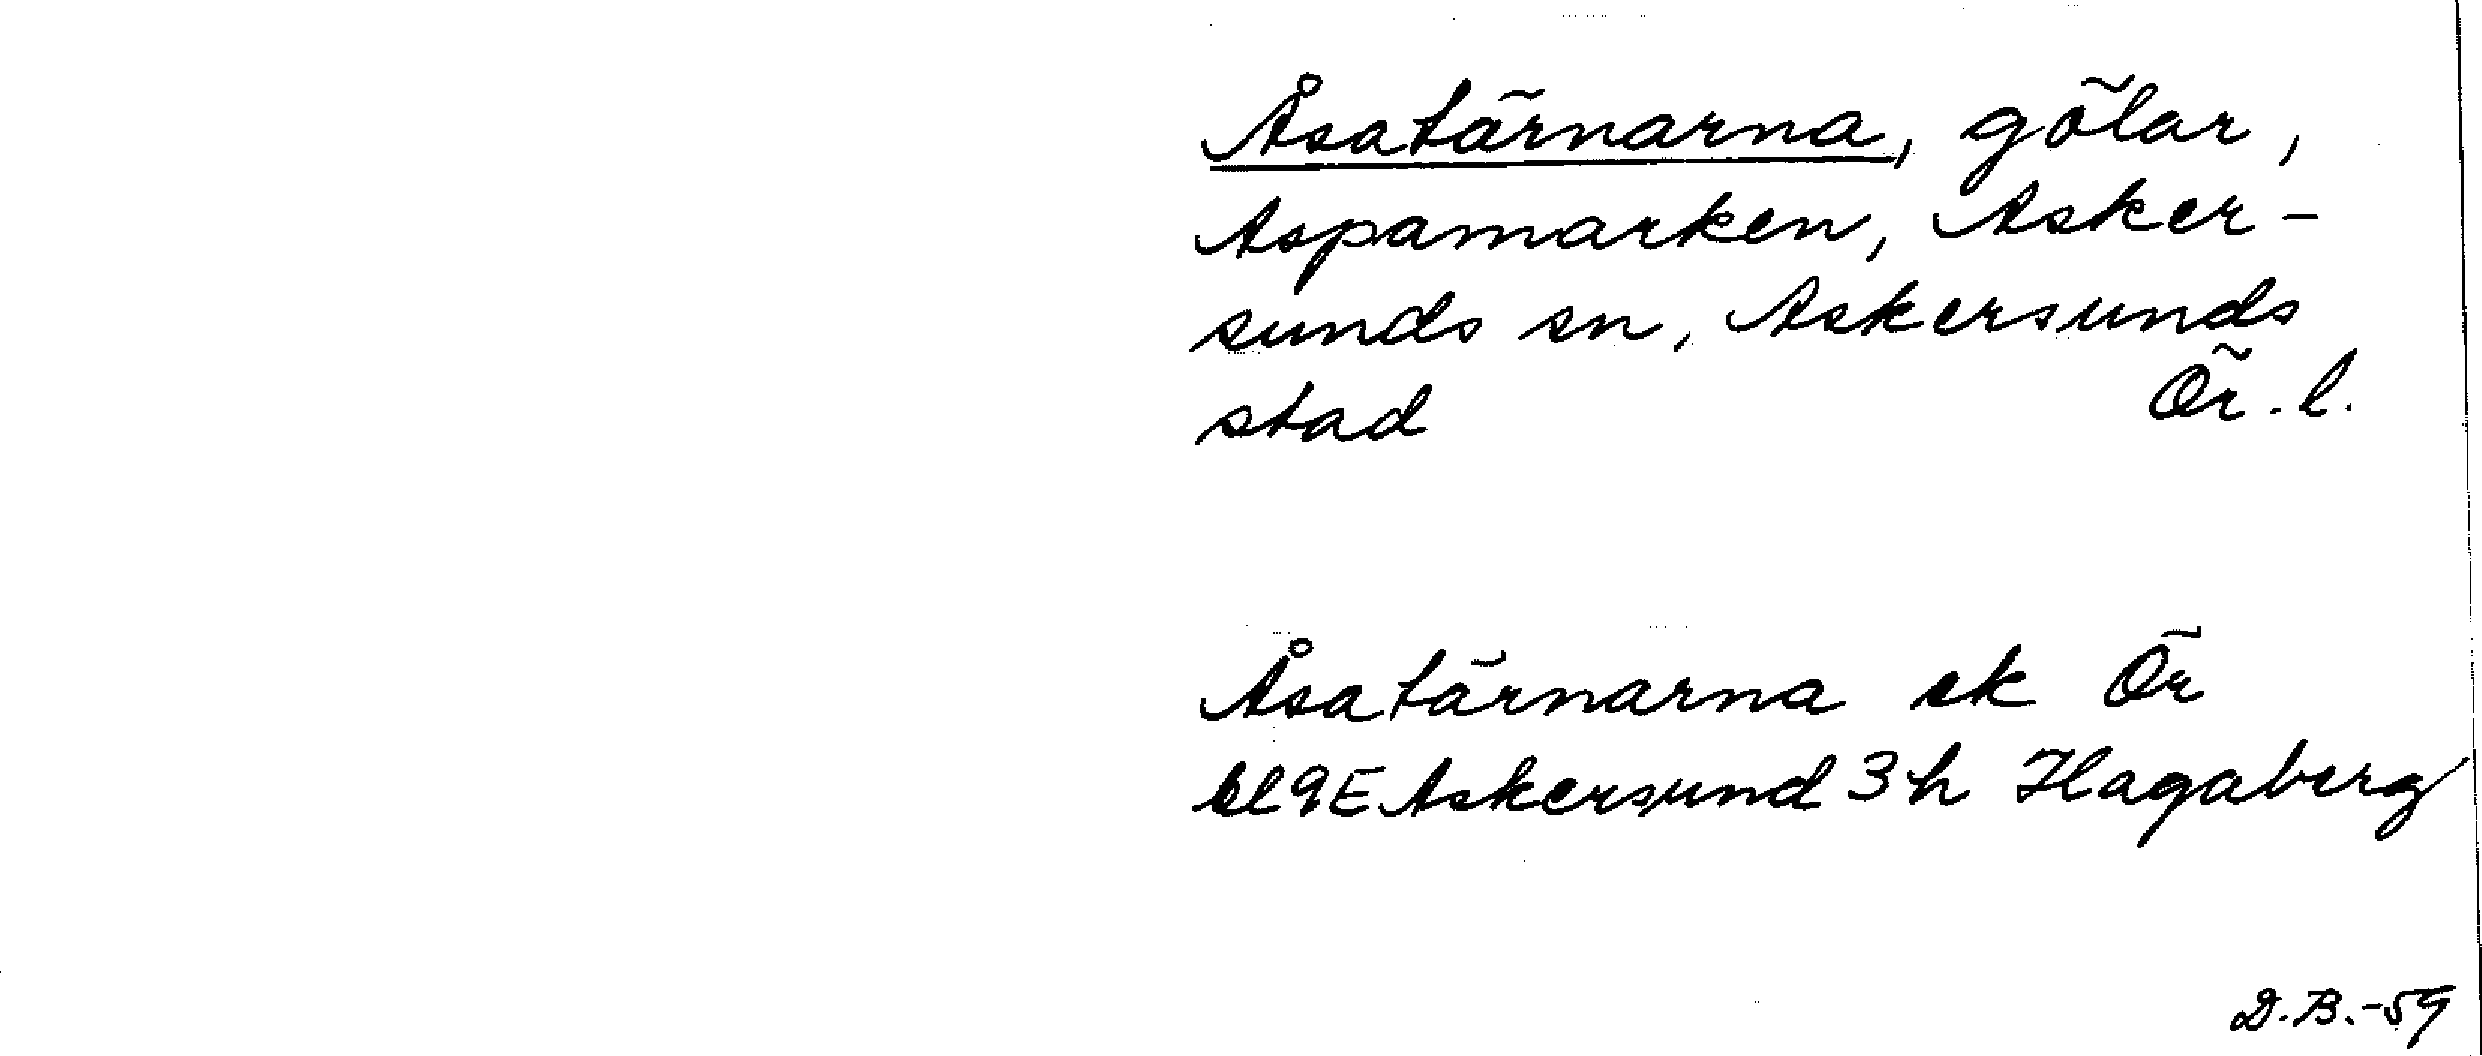 Åsatärnarna, gölar,
Aspamarken, Asker-
sunds sn, Askersunds
stad Ör. l.
Åsatärnarna ek Ör
bl 9E Askersund 3h Hagaberg
D.B.-59